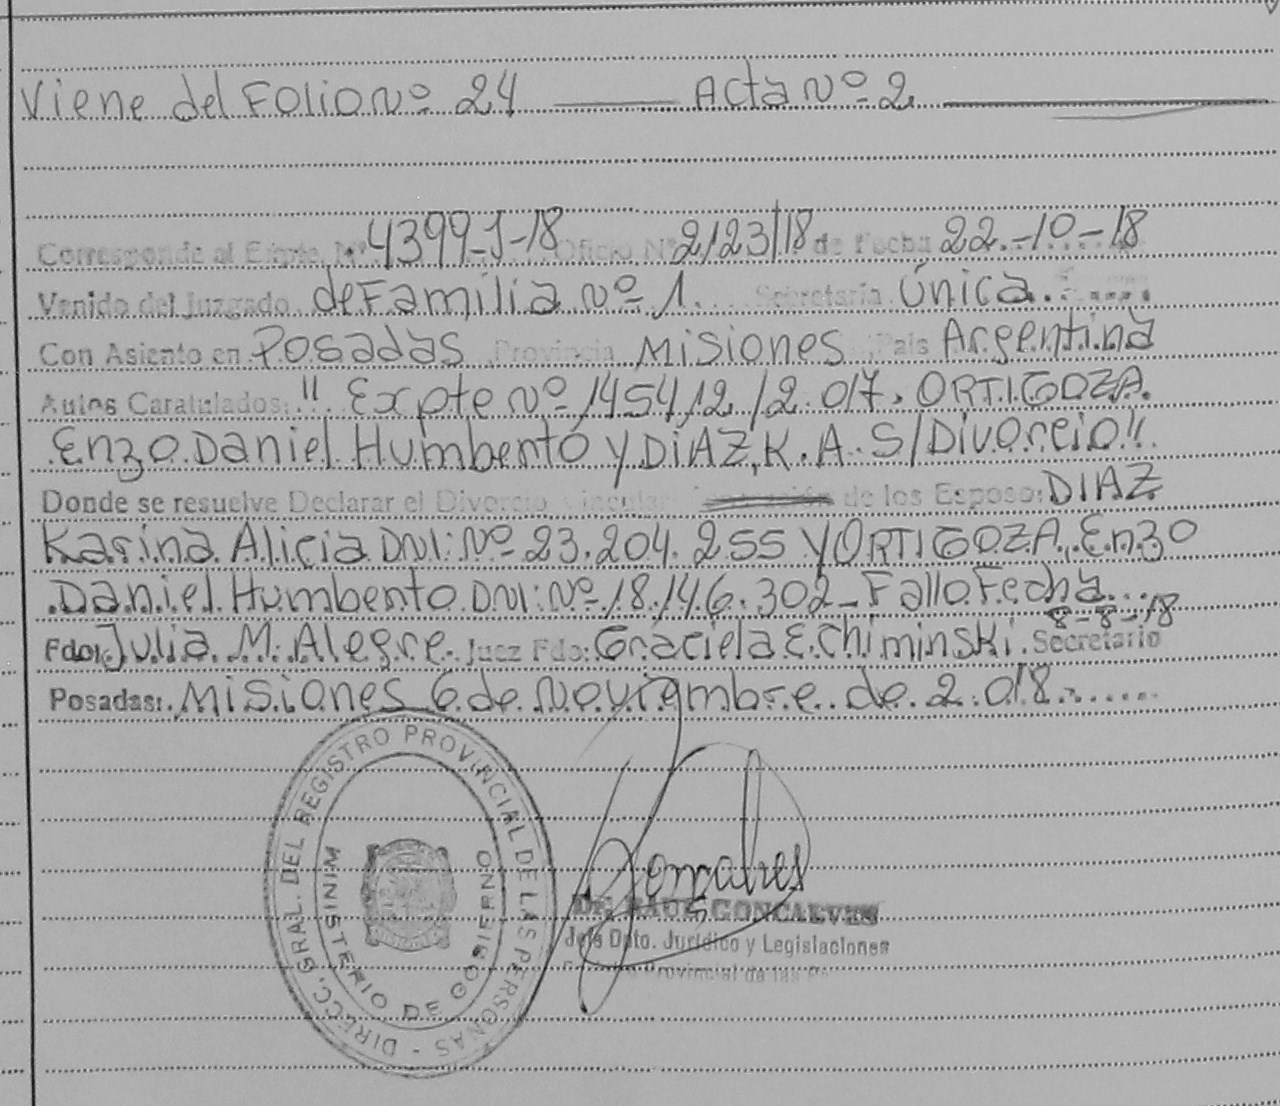 Viene del Folio Nº 24 Acta Nº 2
Corresponde al Expte. Nº 4399-J-18 Oficio Nº 2123/18 de Fecha 22-10-18
Venido del Juzgado de Familia Nº 1. Secretaría Única.
Con Asiento en Posadas Provincia Misiones País Argentina
Autos Caratulados: "Expte Nº 145412/2.017. ORTIGOZA.
Enzo Daniel Humberto y DIAZ, K. A. S/Divorcio".
Donde se resuelve Declarar el Divorcio Vincular de los Esposo: DIAZ
Karina Alicia DNI: Nº 23.204.255 y ORTIGOZA, Enzo
Daniel Humberto DNI: Nº 18.146.302 - Fallo Fecha
8-8-18
Fdo: Julia M. Alegre. Juez Fdo: Graciela E. Chiminski. Secretario
Posadas: Misiones 6 de Noviembre de 2.018
DIRECC. GRAL. DEL REGISTRO PROVINCIAL DE LAS PERSONAS -
MINISTERIO DE GOBIERNO
Goncalves
Dr. RAUL GONCALVES
Jefe Dpto. Jurídico y Legislaciones
Provincial de las